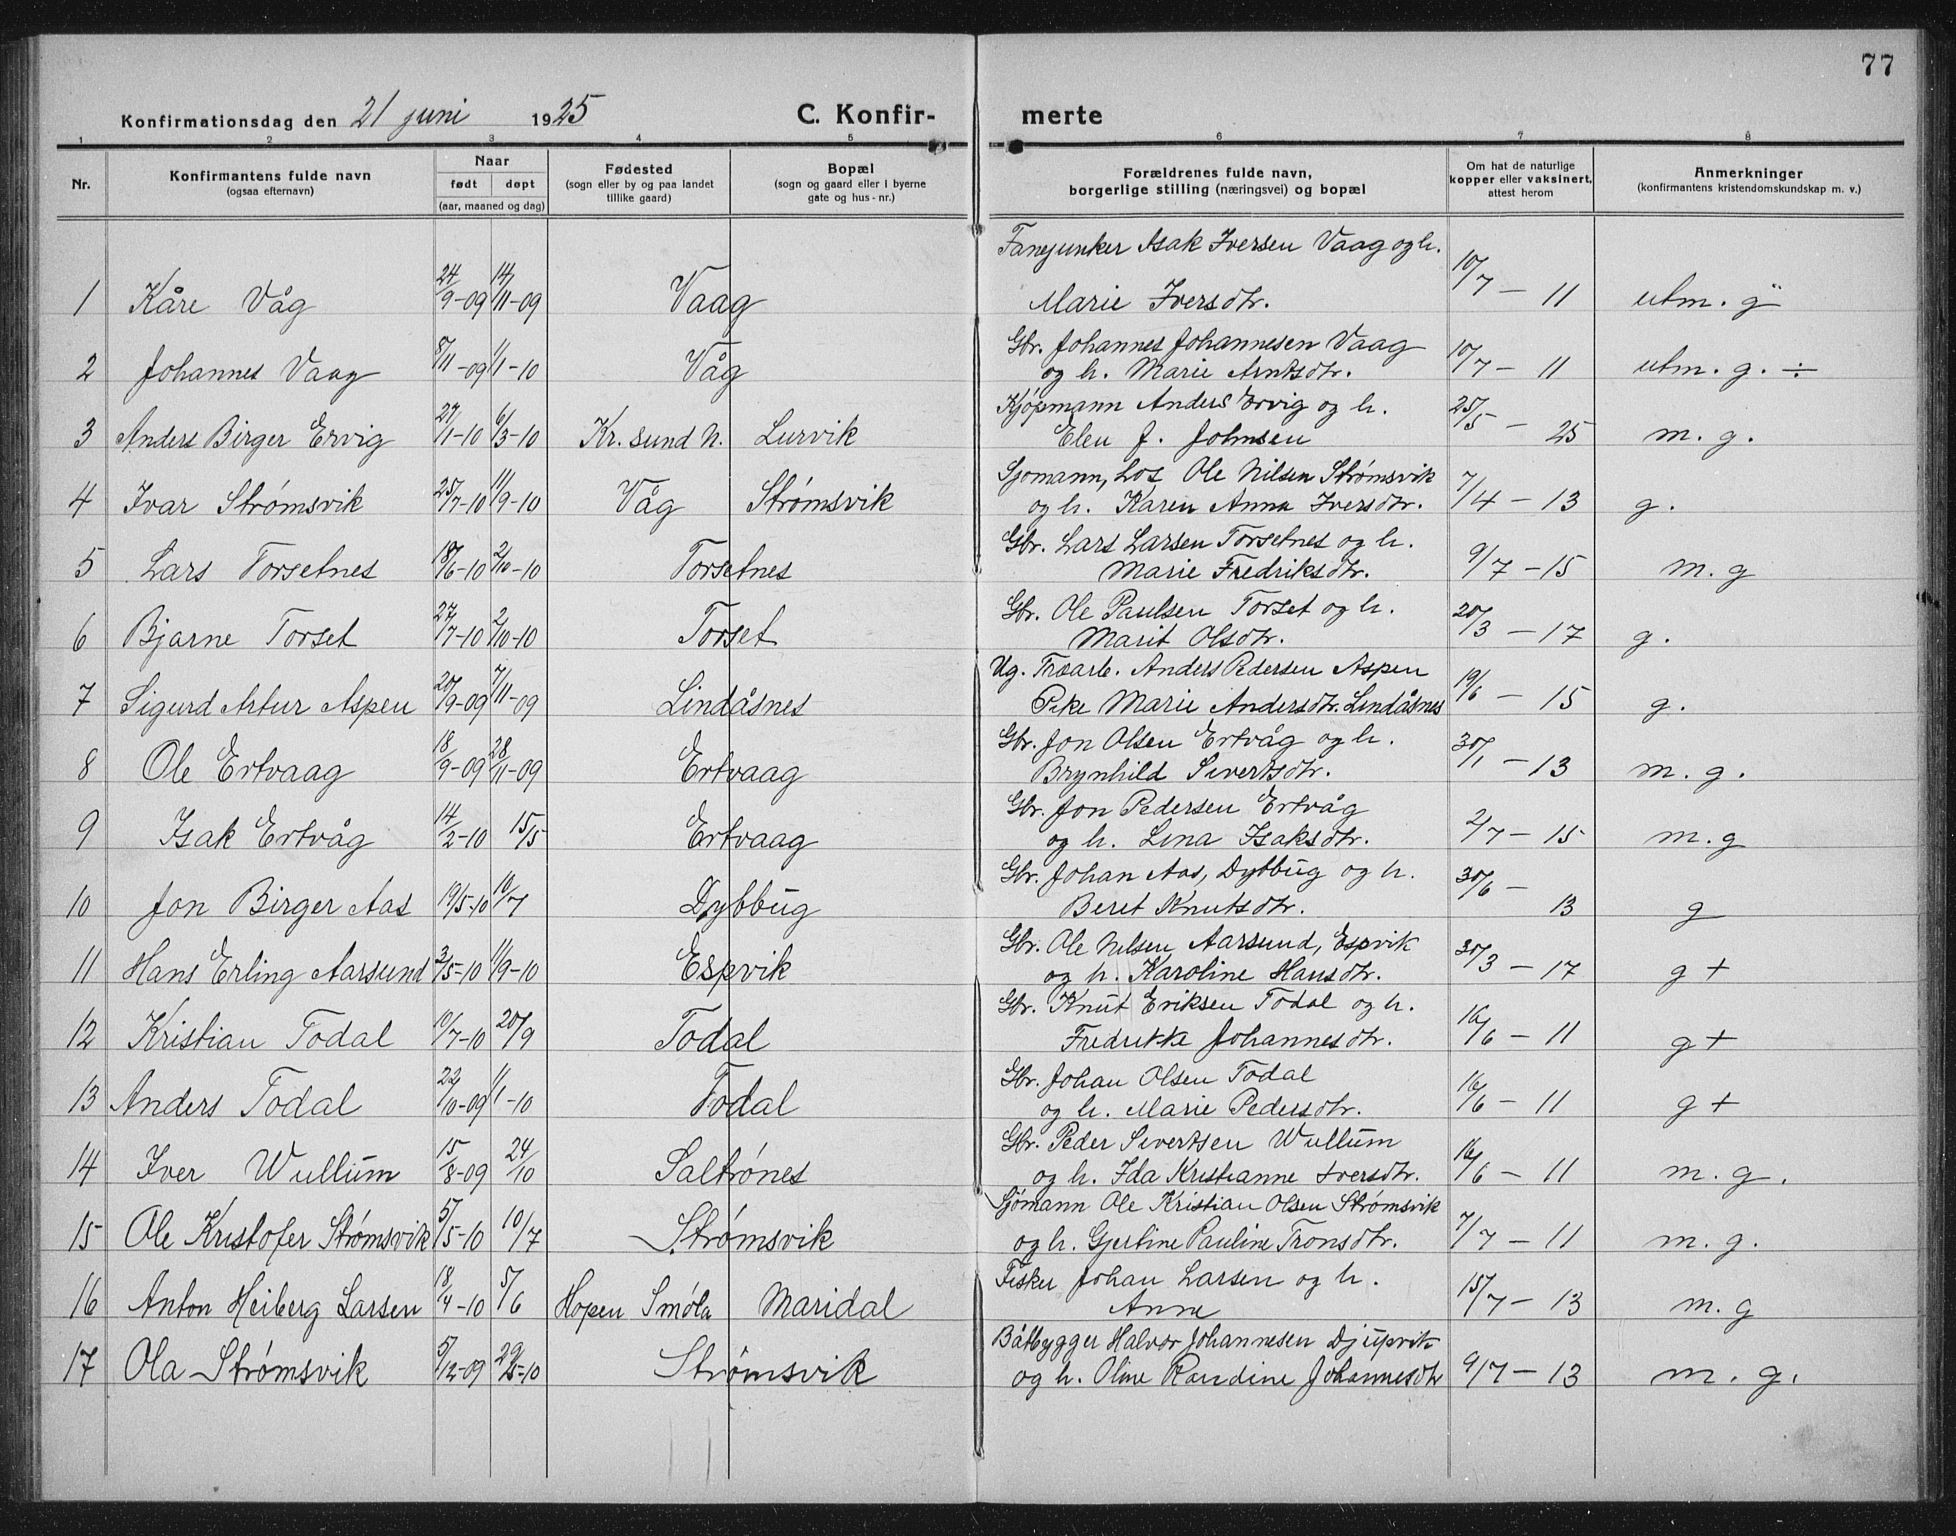 77
Konfirmationsdag den 21 juni 1925 C. Konfir- merte
1 2 3 4 5 6 7 8
Nr. Konfirmantens fulde navn (ogsaa efternavn) Naar født døpt (aar, maaned og dag) Fødested (sogn eller by og paa landet tillike gaard) Bopæl (sogn og gaard eller i byerne gate og hus-nr.) Forældrenes fulde navn, borgerlige stilling (næringsvei) og bopæl Om hat de naturlige kopper eller vaksinert, attest herom Anmerkninger (konfirmantens kristendomskundskap m. v.)
Fanejunker Isak Iversen Vaag og h.
1 Kåre Våg 24/9-09 14/11-09 Vaag Marie Iversdtr. 10/7 - 11 utm. g
Gbr. Johannes Johannesen Vaag
2 Johannes Vaag 8/11-09 1/1-10 Våg og h. Marie Arntsdtr. 10/7 - 11 utm. g. ÷
Kjøpmann Anders Ervig og h.
3 Anders Birger Ervig 27/1-10 6/3-10 Kr. sund N. Lurvik Elen J. Johnsen 25/5 - 25 m. g.
Sjomann, Los Ole Nilsen Strømsvik
4 Ivar Strømsvik 25/7-10 11/9-10 Våg Strømsvik og h. Karen Anna Iversdtr. 7/4 - 13 g.
Gbr. Lars Larsen Torsetnes og h.
5 Lars Torsetnes 18/6-10 2/10-10 Torsetnes Marie Fredriksdtr. 9/7 - 15 m. g
Gbr. Ole Paulsen Torset og h.
6 Bjarne Torset 27/7-10 2/10-10 Torset Marit Olsdtr. 20/3 - 17 g.
Ug. Træarb. Anders Pedersen Aspen
7 Sigurd Artur Aspen 20/9-09 7/11-09 Lindåsnes Pike Marie Andersdtr. Lindåsnes 19/6 - 15 g.
Gbr. Jon Olsen Ertvåg og h.
8 Ole Ertvaag 18/9-09 28/11-09 Ertvaag Brynhild Sivertsdtr. 30/1 - 13 m. g.
Gbr. Jon Pedersen Ertvåg
9 Isak Ertvåg 14/2-10 15/5 Ertvaag og h. Lina Isaksdtr. 2/7 - 15 m. g
Gbr. Johan Aas, Dybbug og h.
10 Jon Birger Aas 19/5-10 10/7 Dybbug Beret Knutsdtr. 30/6 - 13 g
Gbr. Ole Nilsen Aarsund, Espvik
11 Hans Erling Aarsund 3/5-10 11/9-10 Espvik og h. Karoline Hansdtr. 30/3 - 17 g +
Gbr. Knut Eriksen Todal og h.
12 Kristian Todal 10/7-10 20/9 Todal Fredrikke Johannesdtr. 16/6 - 11 g +
Gbr. Johan Olsen Todal
13 Anders Todal 22/10-09 1/1-10 Todal og h. Marie Pedersdtr. 16/6 - 11 g +
Gbr. Peder Sivertsen Wullum
14 Iver Wullum 15/8-09 24/10 Saltrønes og h. Ida Kristianne Iversdtr. 16/6 - 11 m. g.
Sjömann Ole Kristian Olsen Strømsvik
15 Ole Kristofer Strømsvik 5/5-10 10/7 Strømsvik og h. Gjertine Pauline Tronsdtr. 7/7 - 11 m. g.
Fisker Johan Larsen og h.
16 Anton Heiberg Larsen 18/4-10 5/6 Hopen Smøla Maridal Anne 15/7 - 13 m. g
Båtbygger Halvor Johannesen Djupvik
17 Ola Strømsvik 5/12-09 Strømsvik og h. Oline Randine Johannesdtr 9/7 - 13 m. g.